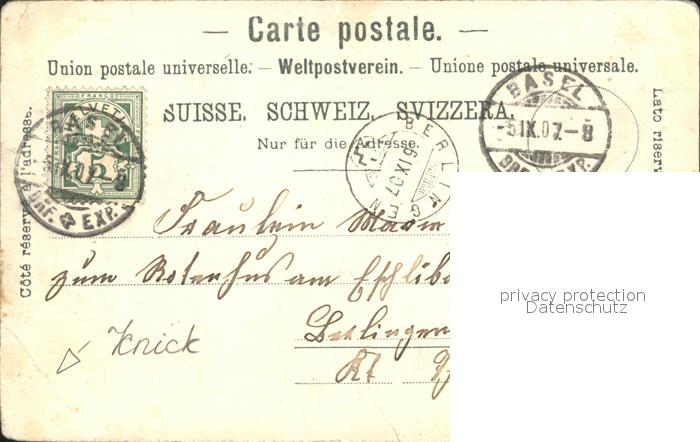 — Carte postale. —
Union postale universelle. — Weltpostverein. — Unione postale universale.
SUISSE. SCHWEIZ. SVIZZERA.
Nur für die Adresse.
Côté réservé à l'adresse.
Lato riserv
FRANCO
HELVETIA
5
BASEL
BRF. EXP.
BERLINGEN
6 IX 07
BASEL
-5.IX.07.-8
BRF. EXP.
Fräulein Marie
zum Rotenhus am
Berlingen
Kt
Knick
privacy protection
Datenschutz